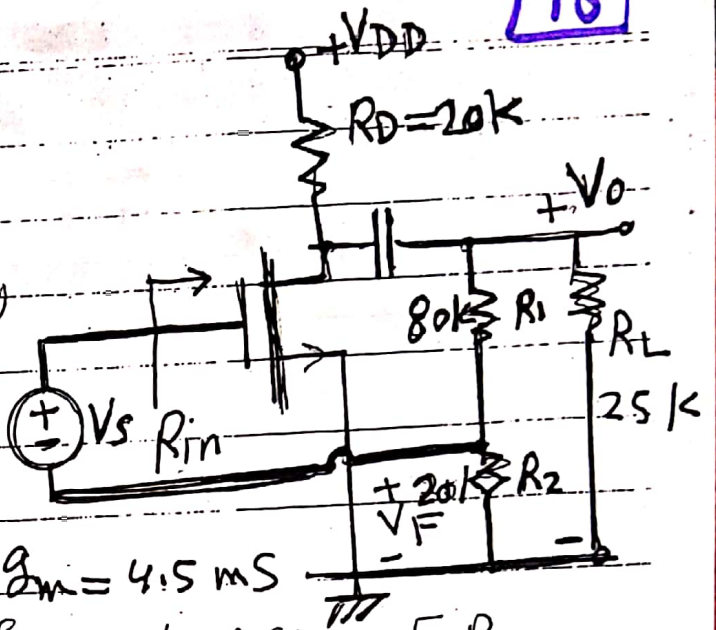 16
+VDD
RD=20K
+ Vo
80K R1
RL
25 K
+
-
Vs
Rin
+ 20K R2
VF
-
-
gm = 4.5 mS